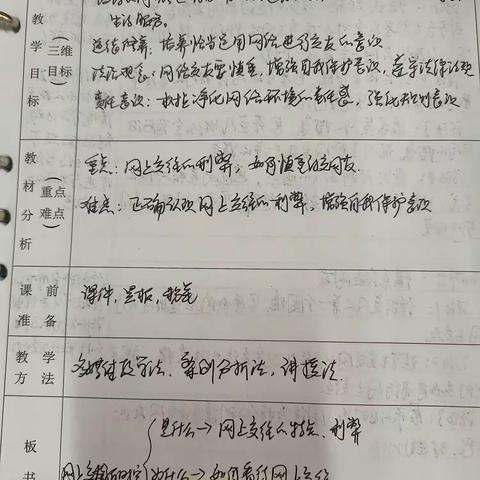 生活服务。
教学目标（三维目标）
道德修养：培养恰当运用网络进行交友的意识
法治观念：网络交友要慎重，增强自我保护意识，遵守法律法规
责任意识：承担净化网络环境的责任感，强化规则意识
教材分析（重点难点）
重点：网上交往的利弊，如何慎重结交网友
难点：正确认识网上交往的利弊，增强自我保护意识
课前准备
课件，黑板，粉笔
教学方法
多媒体教学法、案例分析法，讲授法
板书
是什么→网上交往的特点、利弊
网上交友
为什么→如何看待网上交往